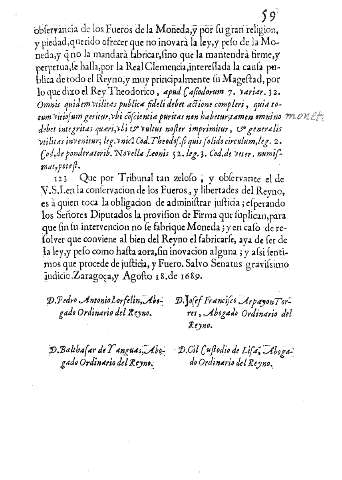 59
observancia de los Fueros de la Moneda, y por su gran religion,
y piedad, querido ofrecer que no inovarà la ley, y peso de la Mo-
neda, y q̃ no la mandarà fabricar, sino que la mantendrà firme, y
perpetua, se halla, por la Real Clemencia, interessada la causa pu-
blica de todo el Reyno, y muy principalmente su Magestad, por
lo que dixo el Rey Theodorico, apud Casiodorum 7. variar. 32.
Omnis quidem vtilitas publica fideli debet actione compleri, quia to-
tum vitiosum geritur, vbi cõscientiæ puritas non habetur, tamen omnino
monet.
debet integritas quæri, vbi & vultus noster imprimitur, & generalis
vtilitas invenitur; leg. vnicâ Cod. Theodos. si quis solido circulum, leg. 2.
Cod. de ponderatorib. Novella Leonis 52. leg. 3. Cod. de veter. numis-
mat. potest.
123 Que por Tribunal tan zeloso, y observante el de
V.S.I. en la conservacion de los Fueros, y libertades del Reyno,
es à quien toca la obligacion de administrar justicia; esperando
los Señores Diputados la provision de Firma que suplican, para
que sin su intervencion no se fabrique Moneda; y en caso de re-
solver que conviene al bien del Reyno el fabricarse, aya de ser de
la ley, y peso como hasta aora, sin inovacion alguna; y assi senti-
mos que procede de justicia, y Fuero. Salvo Senatus gravissimo
iudicio. Zaragoça, y Agosto 18. de 1689.
D. Pedro Antonio Lorfelin, Abo-
gado Ordinario del Reyno.
D. Josef Francisco Arpayon Tor-
res, Abogado Ordinario del
Reyno.
D. Balthasar de Yanguas, Abo-
gado Ordinario del Reyno.
D. Gil Custodio de Lisa, Aboga-
do Ordinario del Reyno.